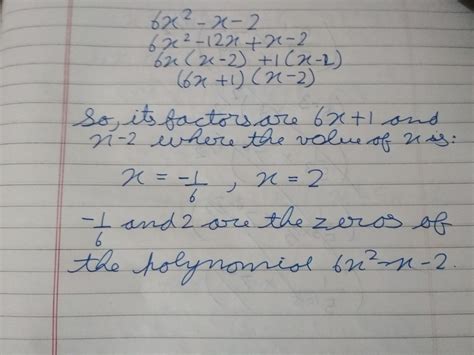 6x² - x - 2
6x² - 12x + x - 2
6x (x - 2) + 1 (x - 2)
(6x + 1) (x - 2)
So, its factors are 6x + 1 and
x - 2 where the value of x is:
x = -1/6 , x = 2
-1/6 and 2 are the zeros of
the polynomial 6x² - x - 2.